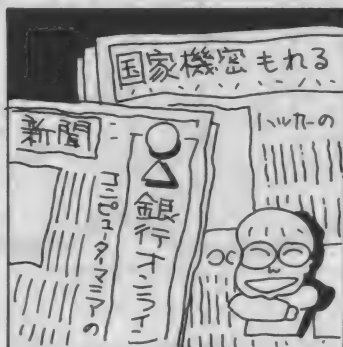 国家機密もれる
ハッカーの
新聞
○△銀行オンライン
コンピュータマニアの